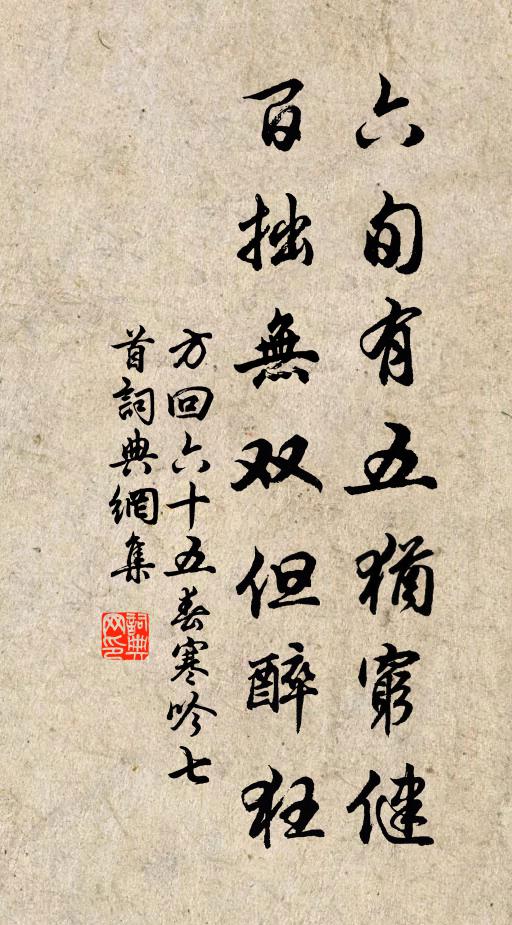 六旬有五猶窮健
百拙無双但醉狂
方回六十五春寒吟七
首詞典網集
詞典
网印